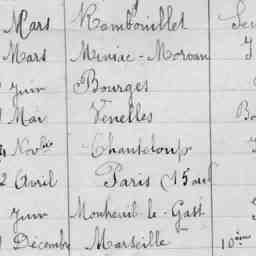 Mars Rambouillet
Mars Miniac-Morvan
Juin Bourges
Mai Venelles
Novbre Chanteloup
2 Avril Paris (15 ar
Juin Montreuil-le-Gast
Décembre Marseille 10ème